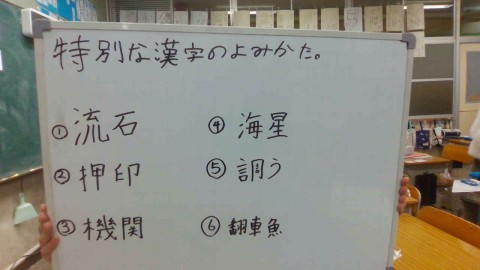 特別な漢字のよみかた。
①流石
②押印
③機関
④海星
⑤調う
⑥翻車魚